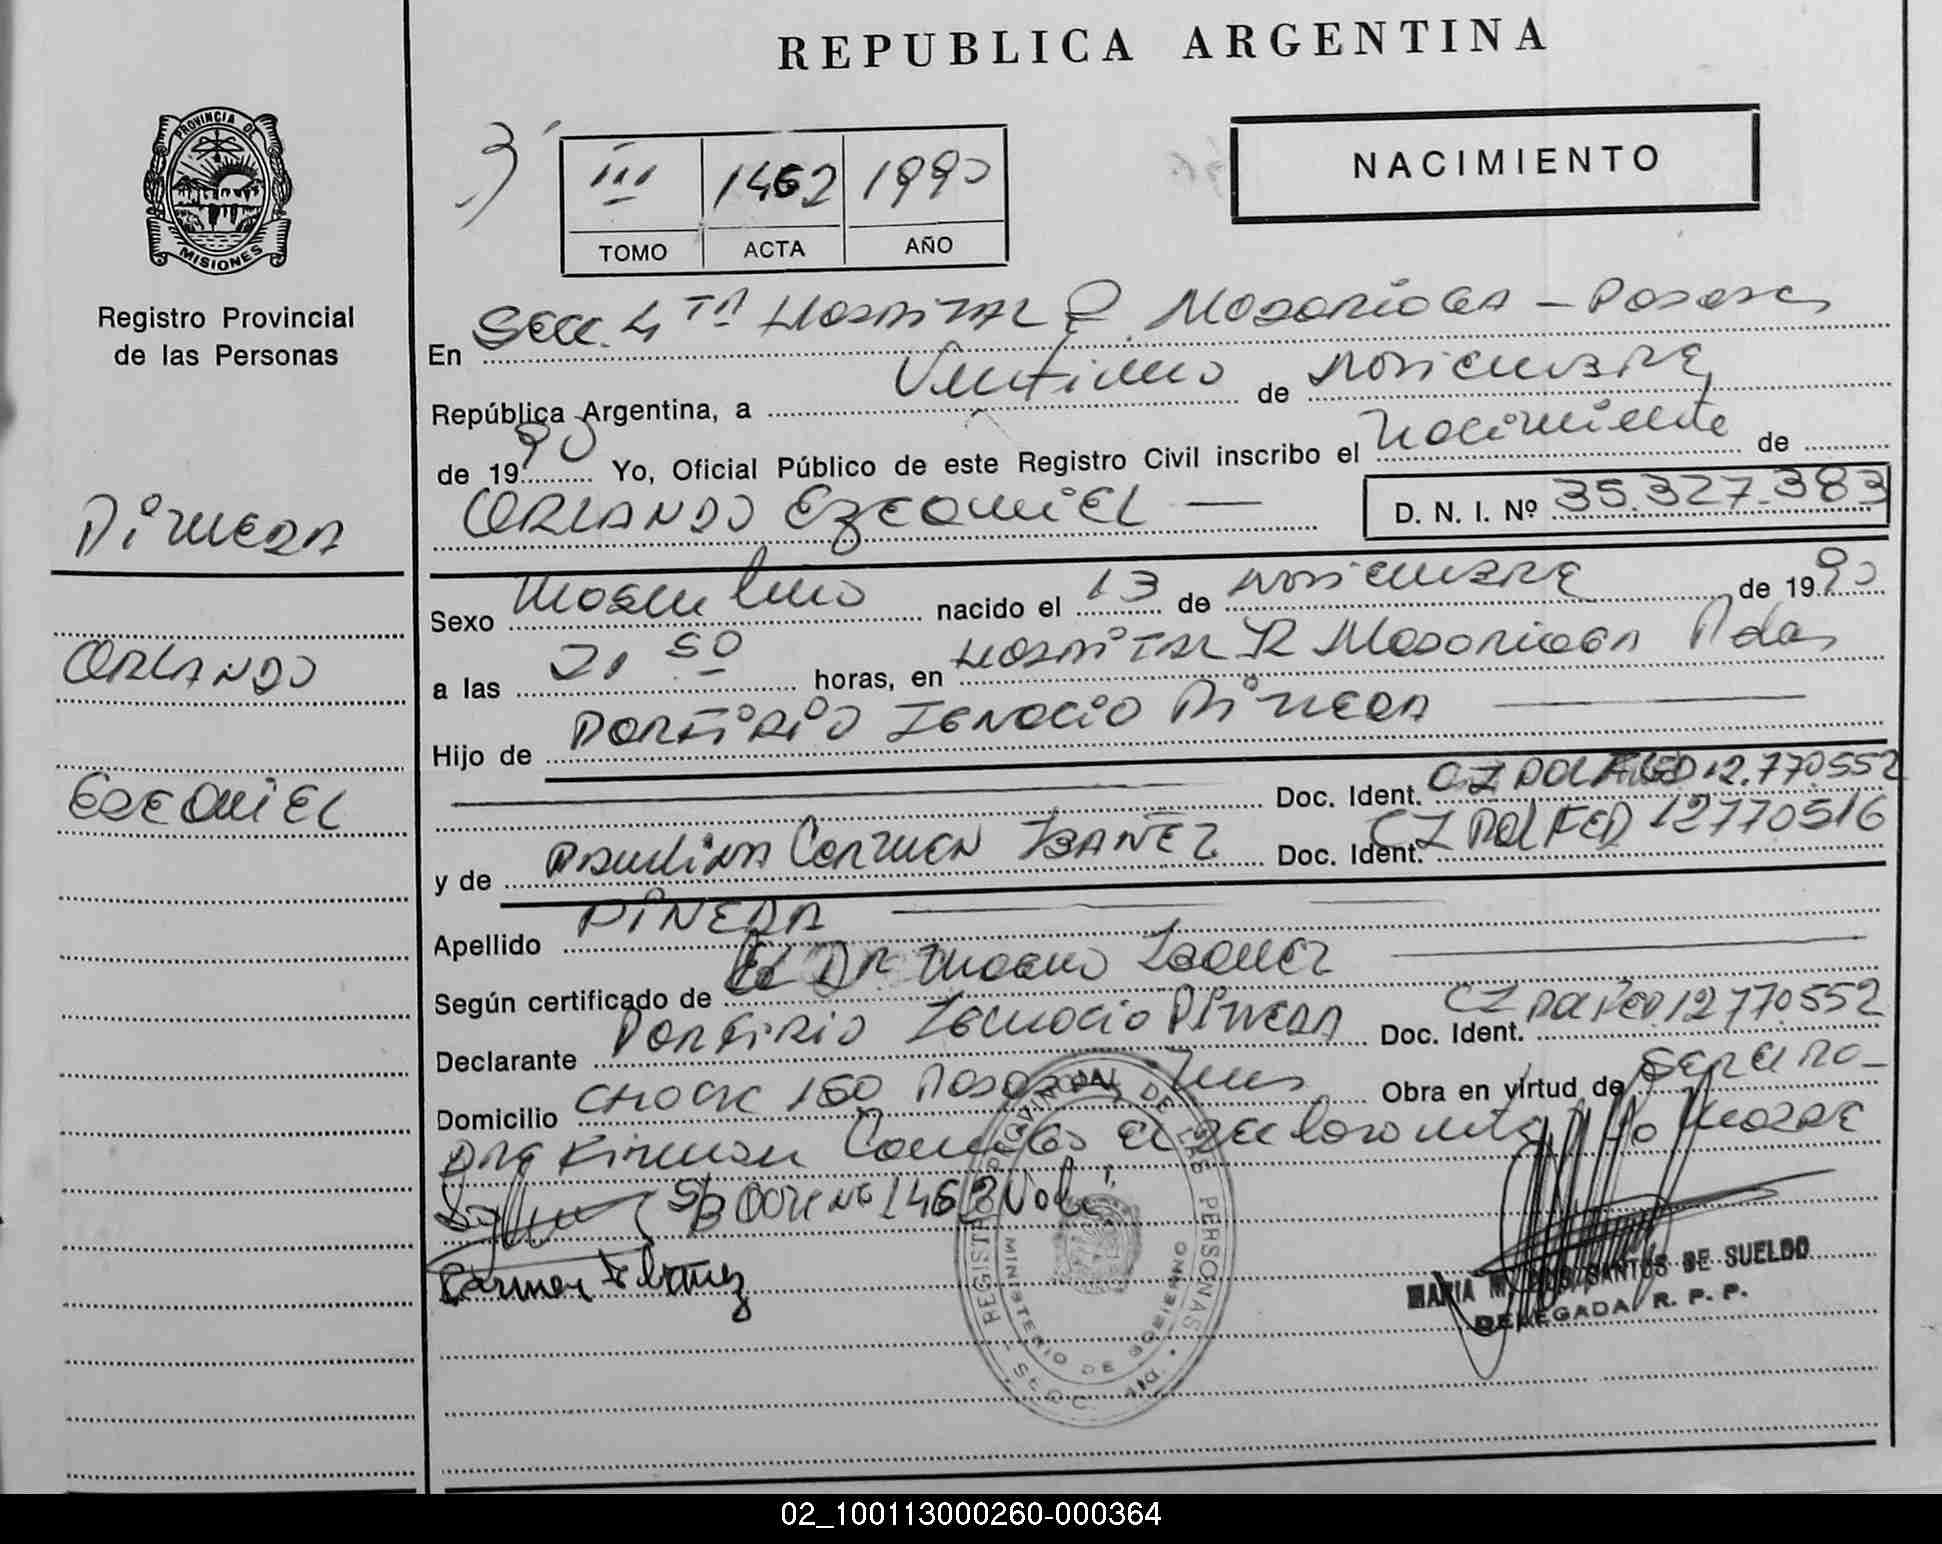 REPUBLICA ARGENTINA
PROVINCIA DE
MISIONES
Registro Provincial
de las Personas
3
III 1462 1990
TOMO ACTA AÑO
NACIMIENTO
En Secc. 4TA Hospital R. Madariaga - Posadas
República Argentina, a Veintiuno de noviembre
de 1990 Yo, Oficial Público de este Registro Civil inscribo el Nacimiento de
ORLANDO EZEQUIEL
D. N. I. Nº 35.327.383
PINEDA
ORLANDO
EZEQUIEL
Sexo Masculino nacido el 13 de noviembre de 1990
a las 21 50 horas, en Hospital R Madariaga Pdas
Hijo de PORFIRIO IGNACIO PINEDA
Doc. Ident. CI POL FED 12.770552
y de PAULINA CARMEN IBAÑEZ Doc. Ident. CI POL FED 12770516
Apellido PINEDA
Según certificado de El DR
Declarante PORFIRIO IGNACIO PINEDA Doc. Ident. CI POL FED 12770552
Domicilio CHACR 150 Posadas Mnes Obra en virtud de
Firman la Madre
S/B 1462 Vale
Carmen Ibañez
REGISTRO PROVINCIAL DE LAS PERSONAS
MINISTERIO DE GOBIERNO
MARIA M. DOS SANTOS DE SUELDO
DELEGADA R. P. P.
02_100113000260-000364